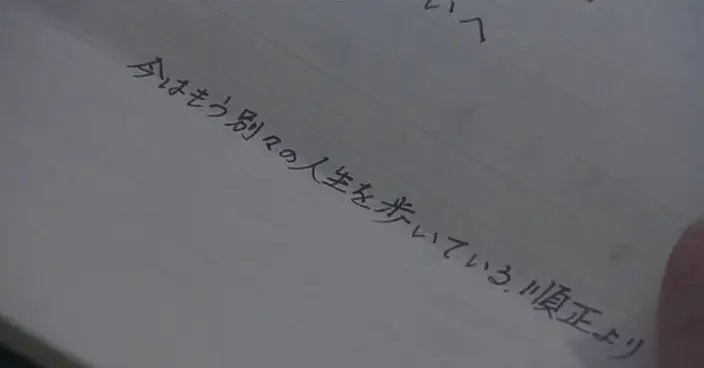 いへ
今はもう別々の人生を歩いている、順正より